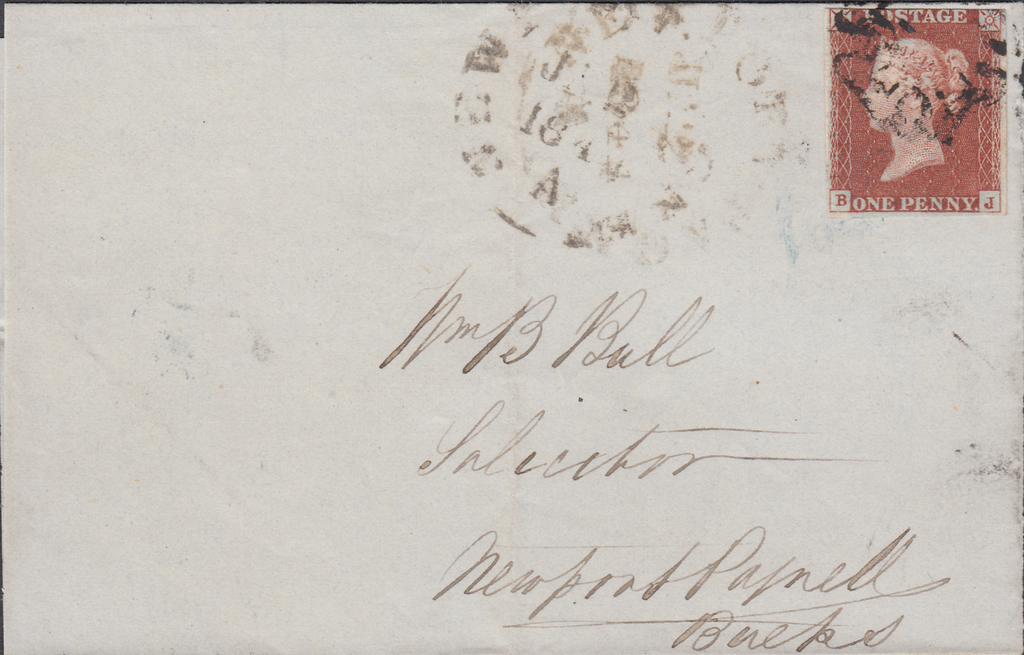 POSTAGE
B ONE PENNY. J
184
A
Wm B Bull
Solicitor
Newport Pagnell
Bucks